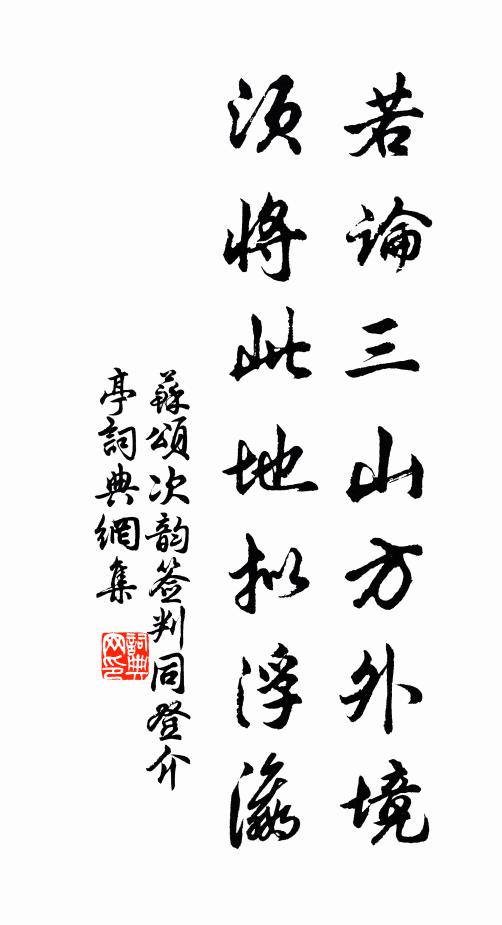 若論三山方外境
須將此地拟浮瀛
蘇頌次韵签判同登介
亭詞典網集
詞典
网印